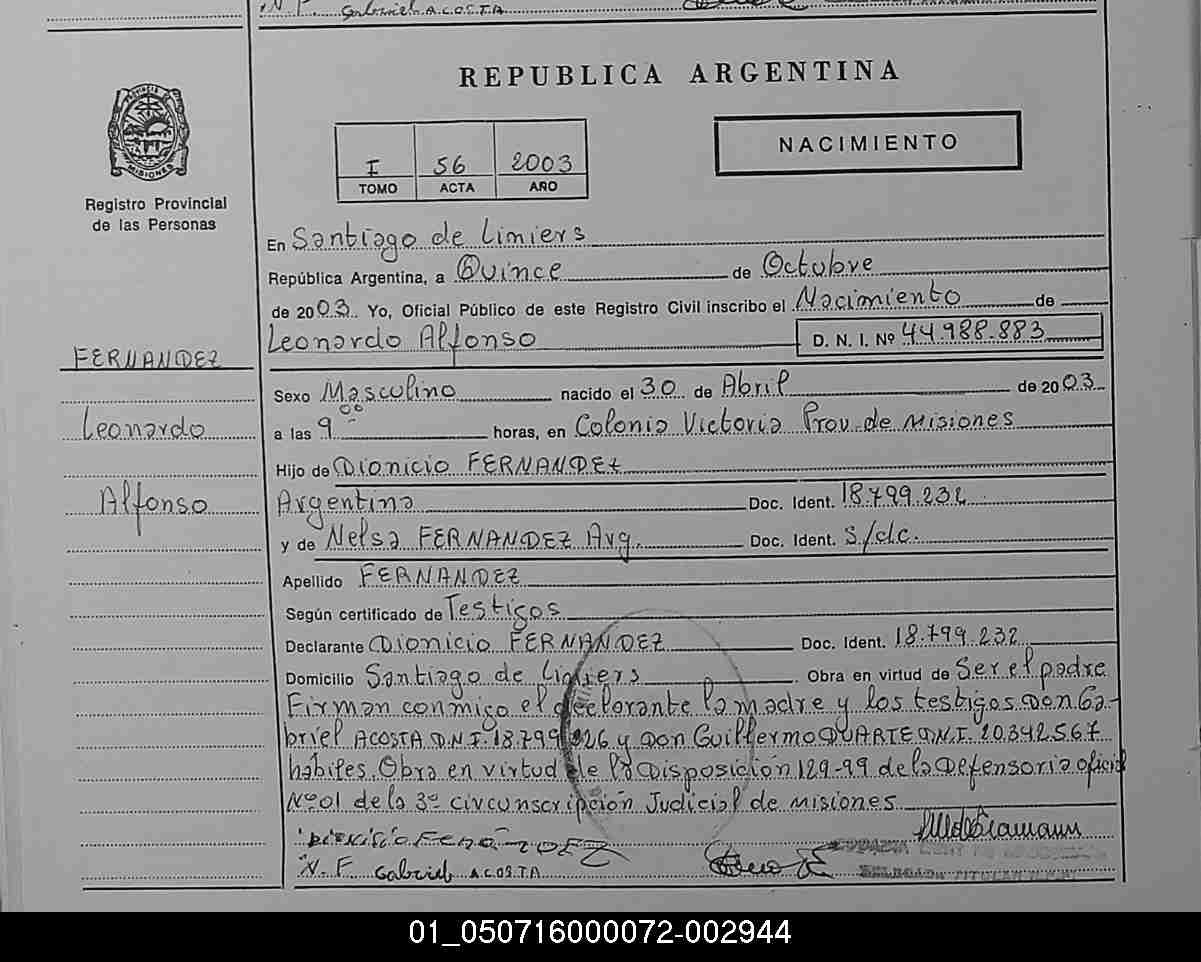 N. F. Gabriel ACOSTA
REPUBLICA ARGENTINA
PROVINCIA DE
MISIONES
Registro Provincial
de las Personas
I 56 2003
TOMO ACTA AÑO
NACIMIENTO
En Santiago de Liniers
República Argentina, a Quince de Octubre
de 2003. Yo, Oficial Público de este Registro Civil inscribo el Nacimiento de
Leonardo Alfonso D. N. I. Nº 44.988.883
FERNANDEZ
Leonardo
Alfonso
Sexo Masculino nacido el 30 de Abril de 2003
a las 9⁰⁰ horas, en Colonia Victoria Prov. de Misiones
Hijo de Dionicio FERNANDEZ
Argentina Doc. Ident. 18.799.232
y de Nelsa FERNANDEZ Arg. Doc. Ident. S/d.c.
Apellido FERNANDEZ
Según certificado de Testigos
Declarante Dionicio FERNANDEZ Doc. Ident. 18.799.232
Domicilio Santiago de Liniers. Obra en virtud de Ser el padre
Firman conmigo el declarante la madre y los testigos Don Ga-
briel ACOSTA D.N.I. 18.799.226 y Don Guillermo DUARTE D.N.I. 20.342.567
hábiles. Obra en virtud de la Disposición 129-99 de la Defensoria oficial
Nº 01 de la 3º circunscripción Judicial de Misiones
N. F. Gabriel ACOSTA
01_050716000072-002944